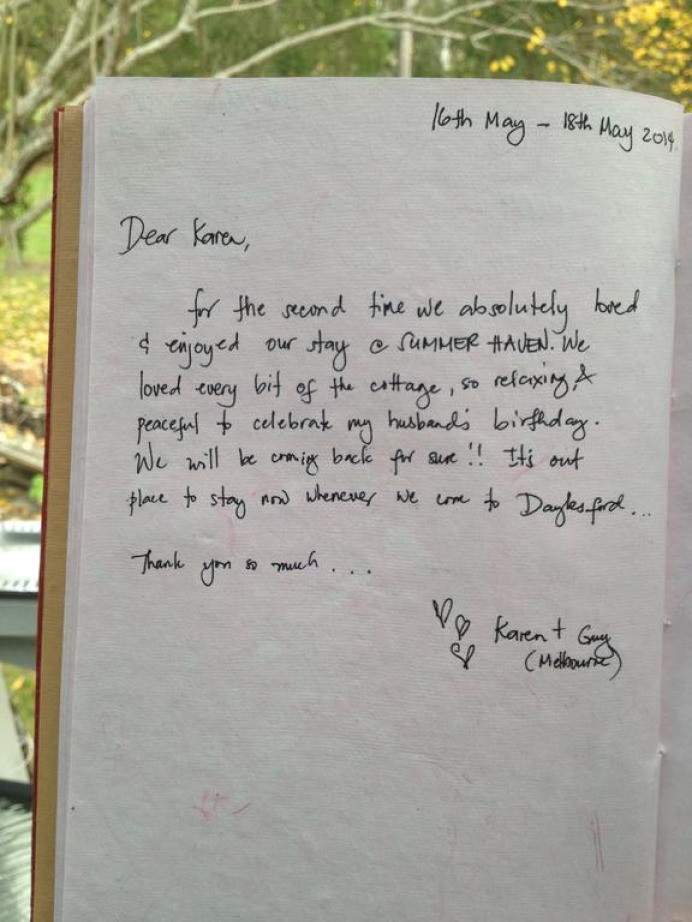 16th May - 18th May 2014
Dear Karen,
for the second time we absolutely loved
& enjoyed our stay @ SUMMER HAVEN. We
loved every bit of the cottage, so relaxing &
peaceful to celebrate my husband's birthday.
We will be coming back for sure!! It's out
place to stay now whenever we come to Daylesford...
Thank you so much...
Karen + Guy
(Melbourne)